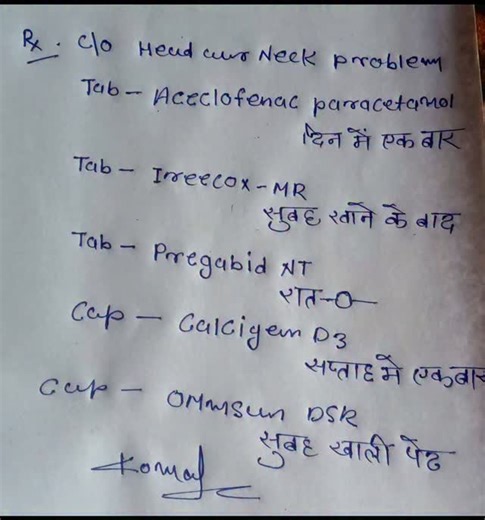 Rx. C/o Head cum Neck problem
Tab - Aceclofenac paracetamol
दिन में एक बार
Tab - Irreecox-MR
सुबह खाने के बाद
Tab - Prregabid NT
रात-0-
Cap - Calcigem D3
सप्ताह में एकबार
Cap - OMMSun DSR
सुबह खाली पेट
Komal